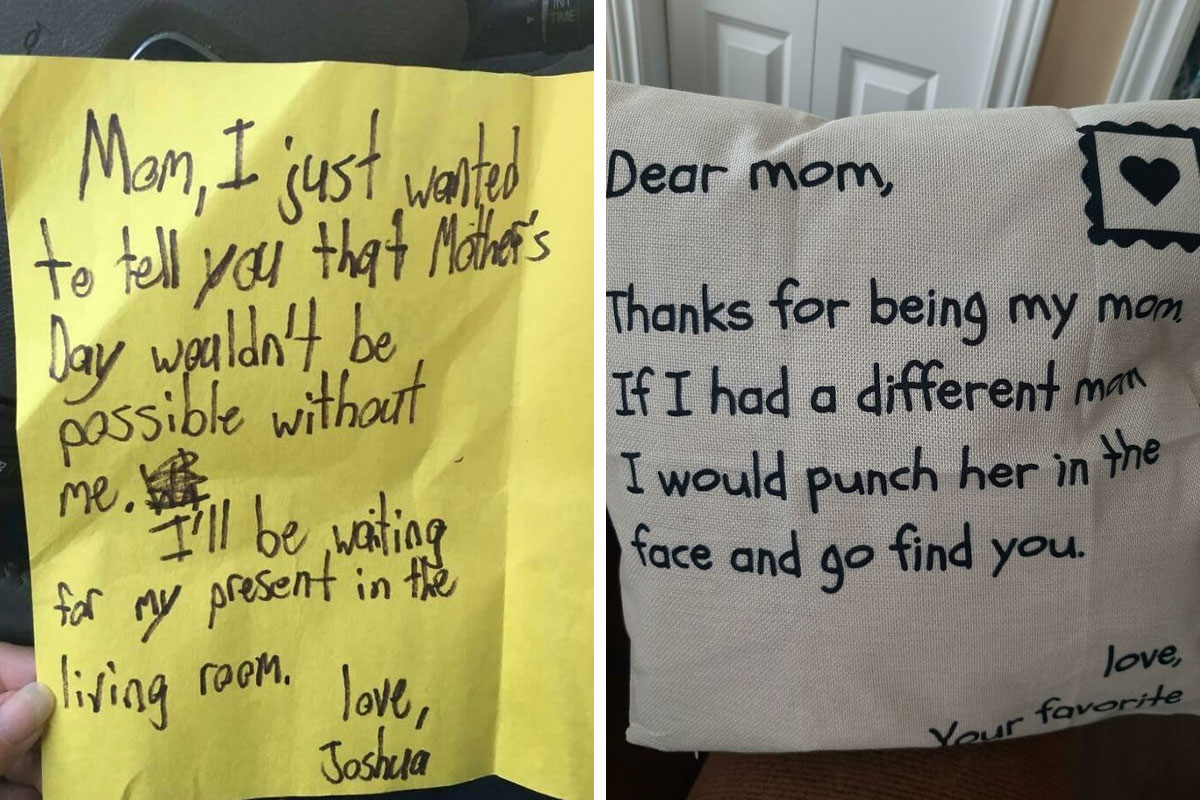 Mom, I just wanted
to tell you that Mother's
Day wouldn't be
possible without
me.
I'll be waiting
for my present in the
living room.
love,
Joshua
Dear mom,
Thanks for being my mom
If I had a different mom
I would punch her in the
face and go find you.
love,
Your favorite
INT
TIME